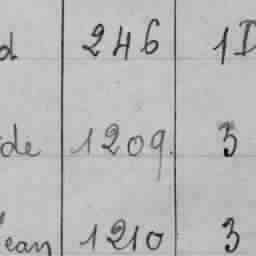 d 246 1D
de 1209. 3
ean 1210 3